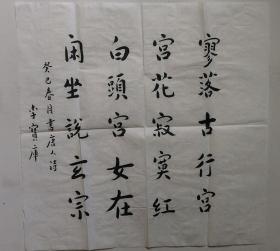 寥落古行宫
宫花寂寞红
白頭宫女在
闲坐説玄宗
癸巳春月書唐人诗
李寶庫